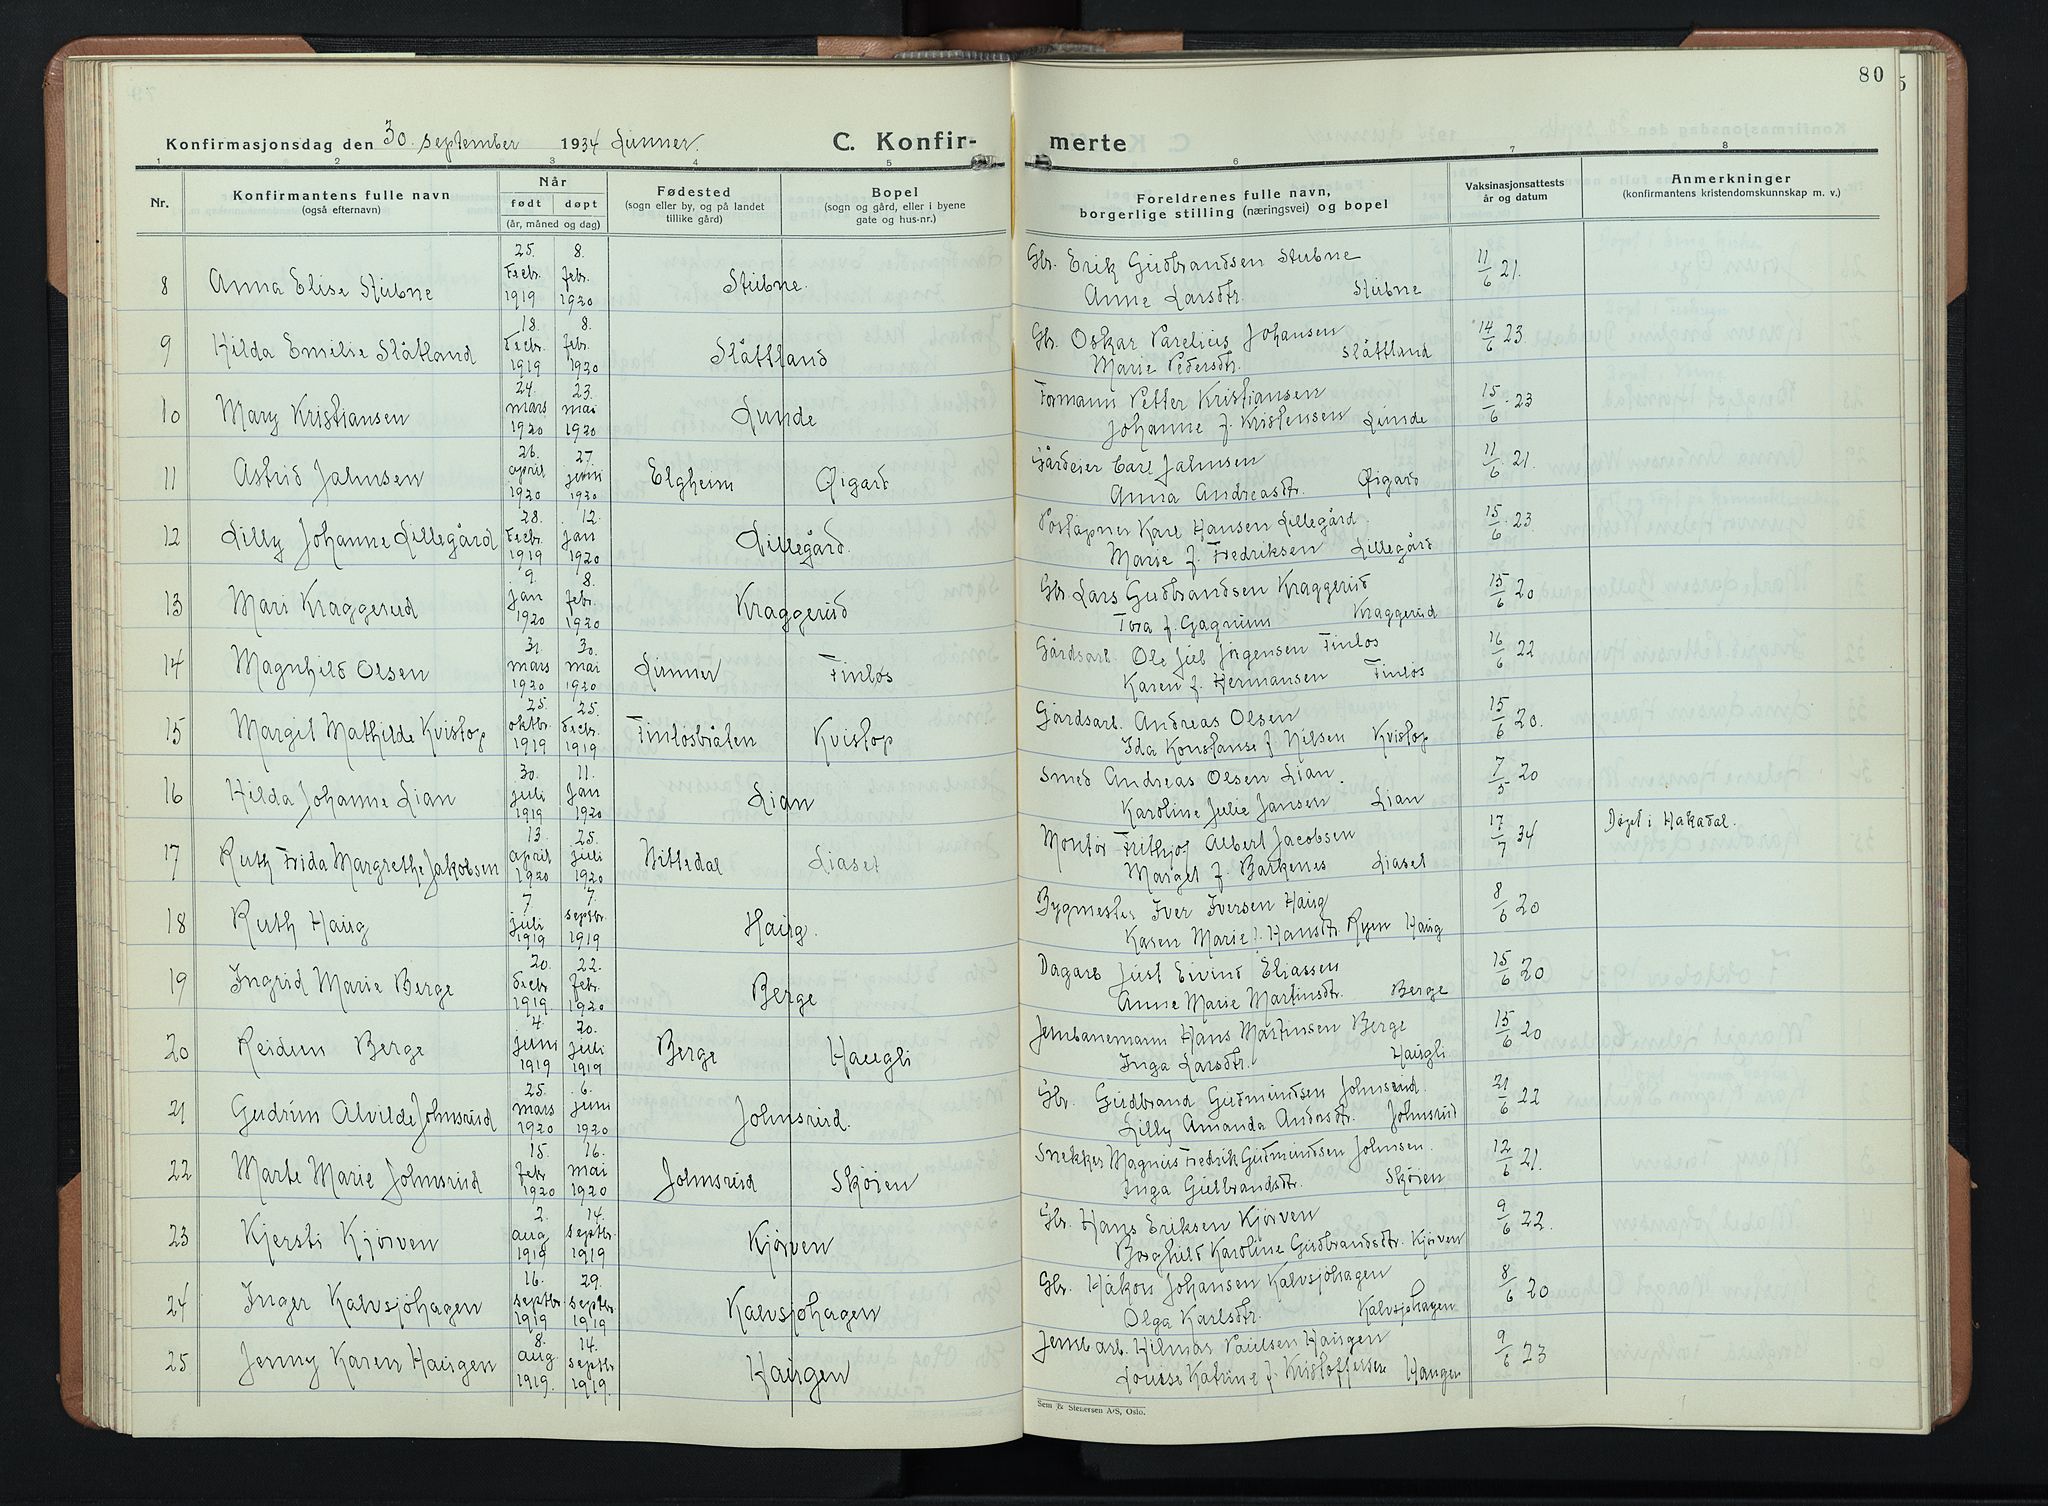 80
Konfirmasjonsdag den 30. september 1934 Lunner. C. Konfir- merte
1 2 3 4 5 6 7 8
Nr. Konfirmantens fulle navn (også efternavn) Når født døpt (år, måned og dag) Fødested (sogn eller by, og på landet tillike gård) Bopel (sogn og gård, eller i byene gate og hus-nr.) Foreldrenes fulle navn, borgerlige stilling (næringsvei) og bopel Vaksinasjonsattests år og datum Anmerkninger (konfirmantens kristendomskunnskap m. v.)
8 Anna Elise Stubne 25. Decbr. 1919 8. febr. 1920 Stubne. Gbr. Erik Gudbrandsen Stubne 11/6 21.
Anne Larsdtr. Stubne
9 Hilda Emilie Slåtland 18. Decbr. 1919 8. febr. 1920 Slåttland Gbr. Oskar Parelius Johansen 14/6 23.
Marie Pedersdtr. Slåttland
10 Mary Kristiansen 24. mars 1920 23. mai 1920 Lunde Formann Petter Kristiansen 15/6 23
Johanne f. Kristensen Lunde
11 Astrid Jahnsen 26. april 1920 27. juni 1920 Elgheim Øigard Gårdeier Carl Jahnsen 11/6 21.
Anna Andreasdtr. Øigard
12 Lilly Johanne Lillegård 28. Decbr. 1919 12. jan 1920 Lillegård. Poståpner Karl Hansen Lillegård. 15/6 23
Marie f. Fredriksen Lillegård
13 Mari Kraggerud 9. jan 1920 8. febr. 1920 Kraggerud Gbr. Lars Gudbrandsen Kraggerud 15/6 20
Tora f. Gagnum Kraggerud
14 Magnhild Olsen 31. mars 1920 30. mai 1920 Lunner Tinlos Gårdsarb. Ole Jul Jørgensen Tinlos 16/6 22
Karen f. Hermansen Tinlos
15 Margit Mathilde Kvistop 25. oktbr. 1919 25. decbr. 1919 Tinlosbråten Kvistop Gårdsarb. Andreas Olsen 15/6 20.
Ida Konstanse f. Nilsen Kvistop
16 Hilda Johanne Lian 30. juli 1919 11. Jan 1920 Lian Smed Andreas Olsen Lian. 7/5 20
Karoline Julie Jansen Lian
17 Ruth Frida Margrethe Jakobsen 13. april 1920 25. juli 1920 Nittedal Liaset Montør Frithjof Albert Jacobsen 17/7 34 Døpt i Hakadal.
Margit f. Barkenes Liaset
18 Ruth Haug 7. juli 1919 7. septbr. 1919 Haug. Bygmester Iver Iversen Haug 8/6 20
Karen Marie Hansdtr. Ryen Haug
19 Ingrid Marie Berge 20. Decbr. 1919 22. febr. 1920 Berge Dagarb Just Eivind Eliassen 15/6 20
Anne Marie Martinsdtr. Berge
20 Reidun Berge 4. juni 1919 20. juli 1919 Berge Haugli Jernbanemann Hans Martinsen Berge 15/6 20
Inga Larsdtr. Haugli
21 Gudrun Alvilde Johnsrud 25. mars 1920 6. juni 1920 Johnsrud. Gbr. Gudbrand Gudmundsen Johnsrud. 21/6 22
Lilly Amanda Andersdtr. Johnsrud
22 Marte Marie Johnsrud 15. febr 1920 16. mai 1920 Johnsrud Skøien Snekker Magnus Fredrik Gudmundsen Johnsen. 12/6 21.
Inga Gulbrandsdtr. Skøien
23 Kjersti Kjørven 2. aug 1919 14. septbr. 1919 Kjørven Gbr. Hans Eriksen Kjørven 9/6 22.
Borghild Karoline Gudbrandsdtr. Kjørven
24 Inger Kalvsjøhagen 16. septbr 1919 29. septbr. 1919 Kalvsjøhagen Gbr. Håkon Johansen Kalvsjøhagen 8/6 20
Olga Karlsdtr. Kalvsjøhagen
25 Jenny Karen Haugen 8. aug 1919. 14. septbr 1919. Haugen Jernb arb. Hilmar Paulsen Haugen 9/6 23
Louise Katrine f. Kristoffersen Haugen
Sem & Stenersen A/S, Oslo.